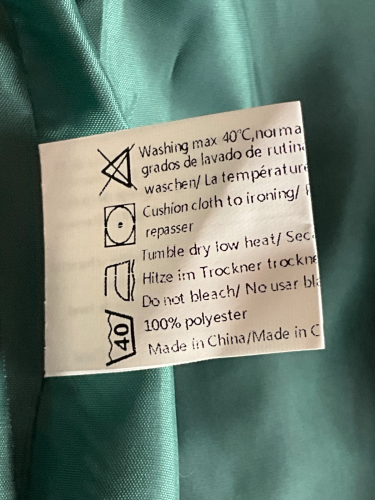 Washing max 40°C, norma
grados de lavado de rutin
waschen/ La température
Cushion cloth to ironing/
repasser
Tumble dry low heat/ Sec
Hitze im Trockner trockne
Do not bleach/ No usar bl
100% polyester
Made in China/Made in C
40